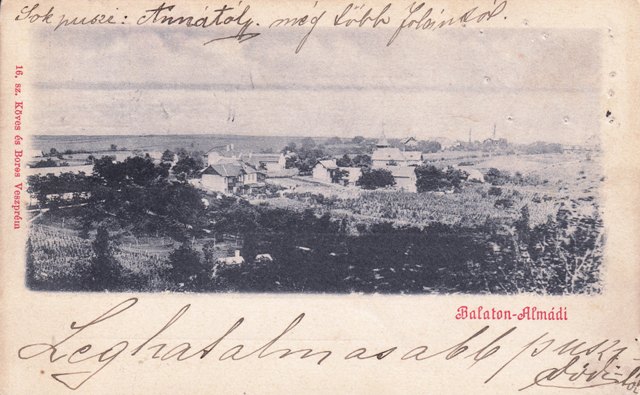 Sok puszi: Annától. még több Jolántól.
16. sz. Köves és Boros Veszprém
Balaton-Almádi
Leghatalmasabb puszi